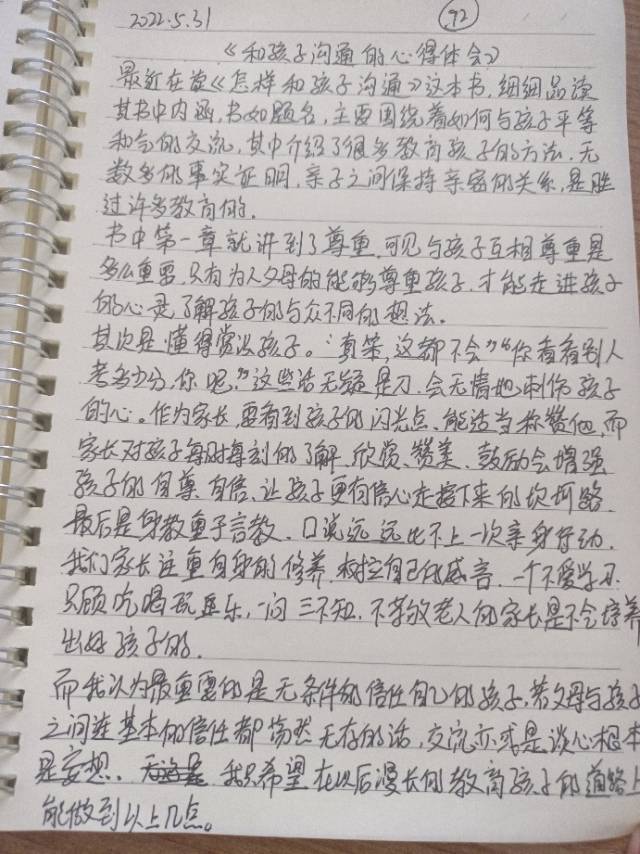 2022.5.31
92
《和孩子沟通的心得体会》
最近在读《怎样和孩子沟通》这本书,细细品读
其书中内涵,书如题名,主要围绕着如何与孩子平等
和合的交流,其中介绍了很多教育孩子的方法.无
数多的事实证明,亲子之间保持亲密的关系,是胜
过许多教育的.
书中第一章就讲到了尊重,可见与孩子互相尊重是
多么重要,只有为人父母的能够尊重孩子,才能走进孩子
的心灵了解孩子的与众不同的想法.
其次是懂得赏识孩子。“真笨,这都不会”“你看看别人
考多少分,你呢”这些话无疑是刀,会无情地刺伤孩子
的心。作为家长,要看到孩子的闪光点,能适当称赞他,而
家长对孩子每时每刻的了解、欣赏、赞美、鼓励会增强
孩子的自尊、自信、让孩子更有信心走接下来的坎坷路.
最后是身教重于言教、口说远远比不上一次亲身行动.
我们家长注重自身的修养,树立自己的威言、一个不爱学习
只顾吃喝玩乐,一问三不知,不孝敬老人的家长是不会培养
出好孩子的.
而我认为最重要的是无条件的信任自己的孩子,若父母与孩子
之间连基本的信任都荡然无存的话,交流亦或是谈心根本
是妄想.我只希望在以后漫长的教育孩子的道路上
能做到以上几点。